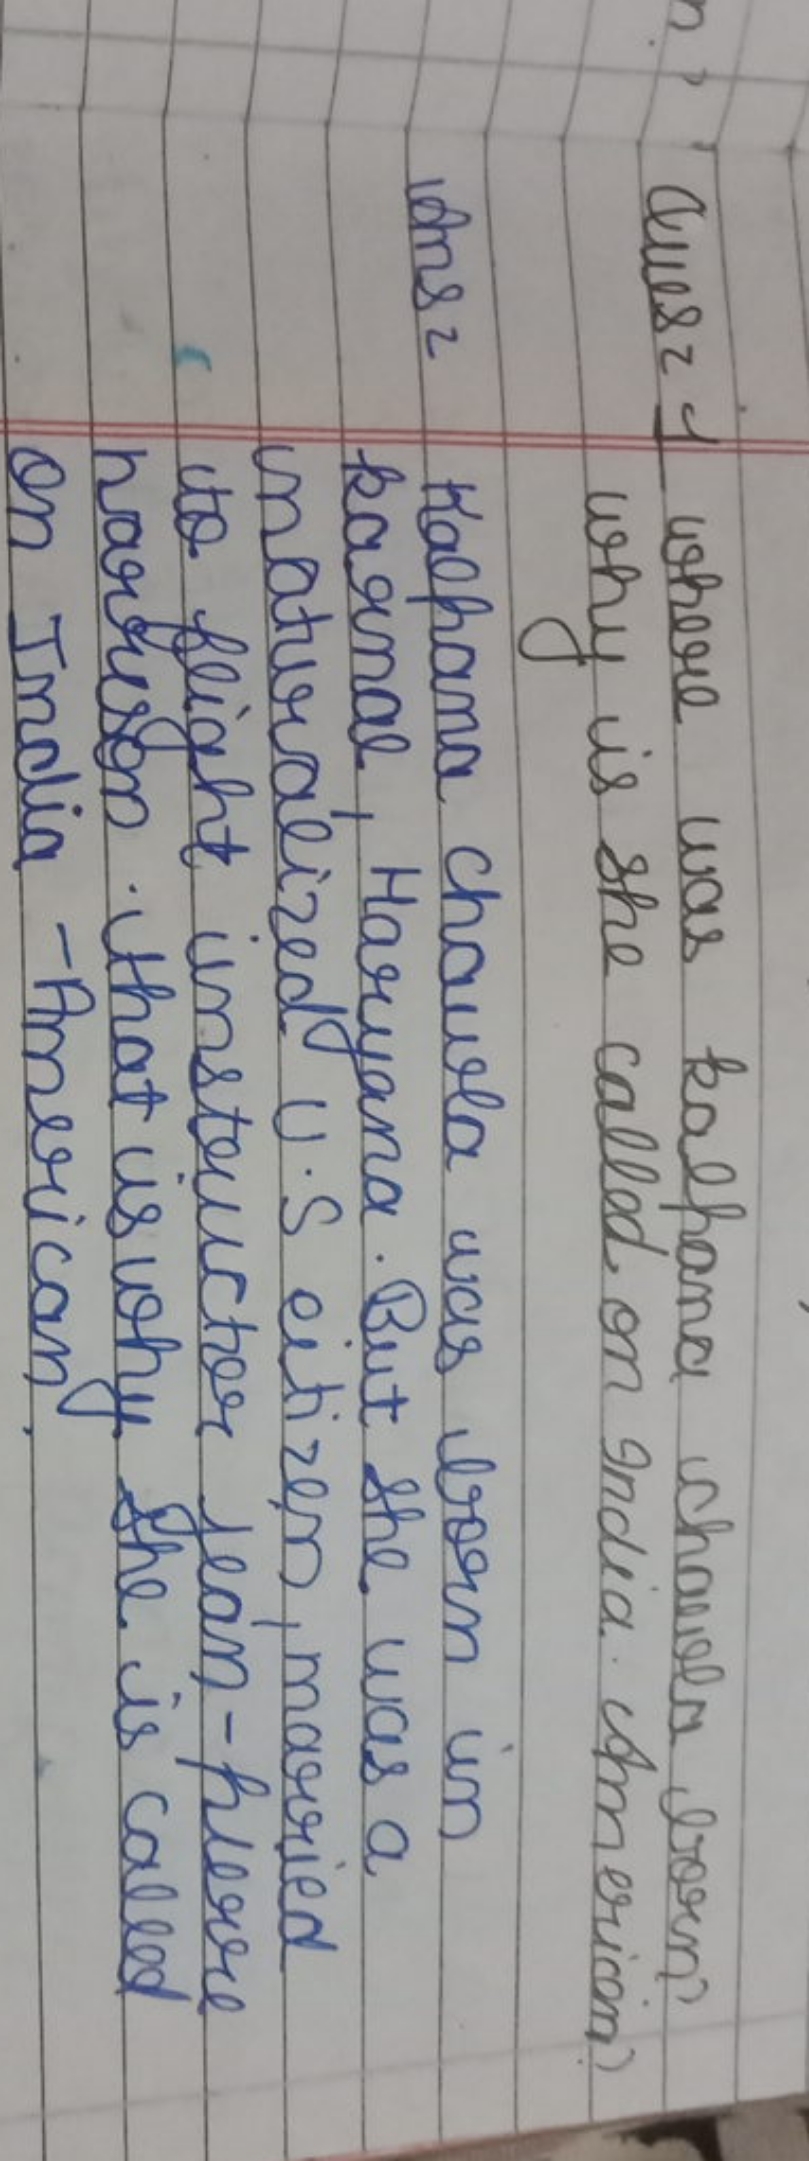 Ques = 1 where was kalpana chawla born?
why is she called on India. American?
Ans = Kalpana chawla was born in
karnal, Haryana. But she was a
naturalized U.S citizen, married
to flight instructor Jean-pierre
harrison. that is why she is called
on India - American.